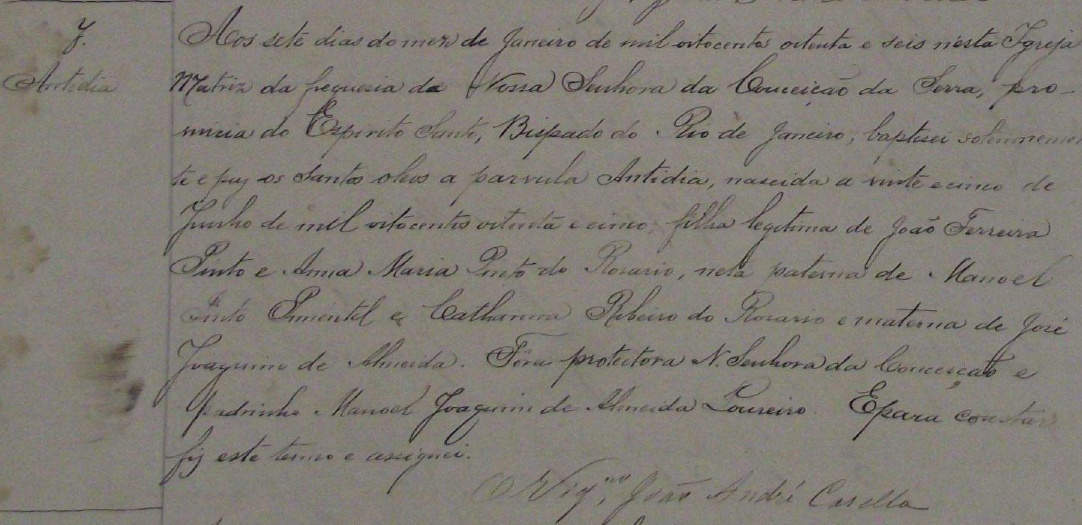 7.
Antidia
Aos sete dias do mez de Janeiro de mil oitocentos oitenta e seis n'esta Igreja
Matriz da freguesia da Nossa Senhora da Conceição da Serra, pro-
vincia do Espirito Santo, Bispado do Rio de Janeiro, baptisei solemnemen
te e puz os Santos oleos a parvula Antidia, nascida a vinte e cinco de
Junho de mil oitocentos oitenta e cinco, filha legitima de João Ferreira
Pinto e Anna Maria Pinto do Rosario, neta paterna de Manoel
Pinto Pimentel e Catharina Ribeiro do Rosario e materna de José
Joaquim de Almeida. Foi protectora N. Senhora da Conceição e
padrinho Manoel Joaquim de Almeida Loureiro. E para constar
fiz este termo e assignei.
O Vigr.º João André Casella